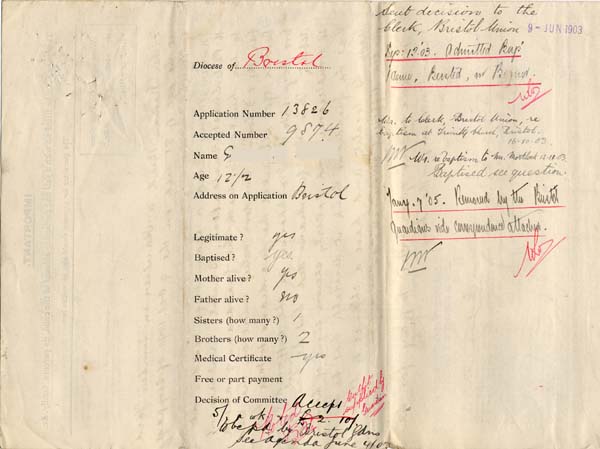 Diocese of Bristol
Application Number 13826
Accepted Number 9874
Name G
Age 12 1/2
Address on Application Bristol
Legitimate? yes
Baptised? yes
Mother alive? yes
Father alive? no
Sisters (how many?) 1
Brothers (how many?) 2
Medical Certificate yes
Free or part payment
Decision of Committee Accept
5/- wk
to be pd by Bristol Gdns
See agenda June 4/03
Sent decision to the
Clerk, Bristol Union
9 - JUN 1903
Sep: 12 '03. Admitted
Wr. to Clerk, Bristol Union, re
baptism at Trinity Church, Bristol.
16-10-03
Wr. re baptism to Mrs.
Baptised see question
Jany. 7 '05. Removed by the Bristol
Guardians vide correspondence attached.